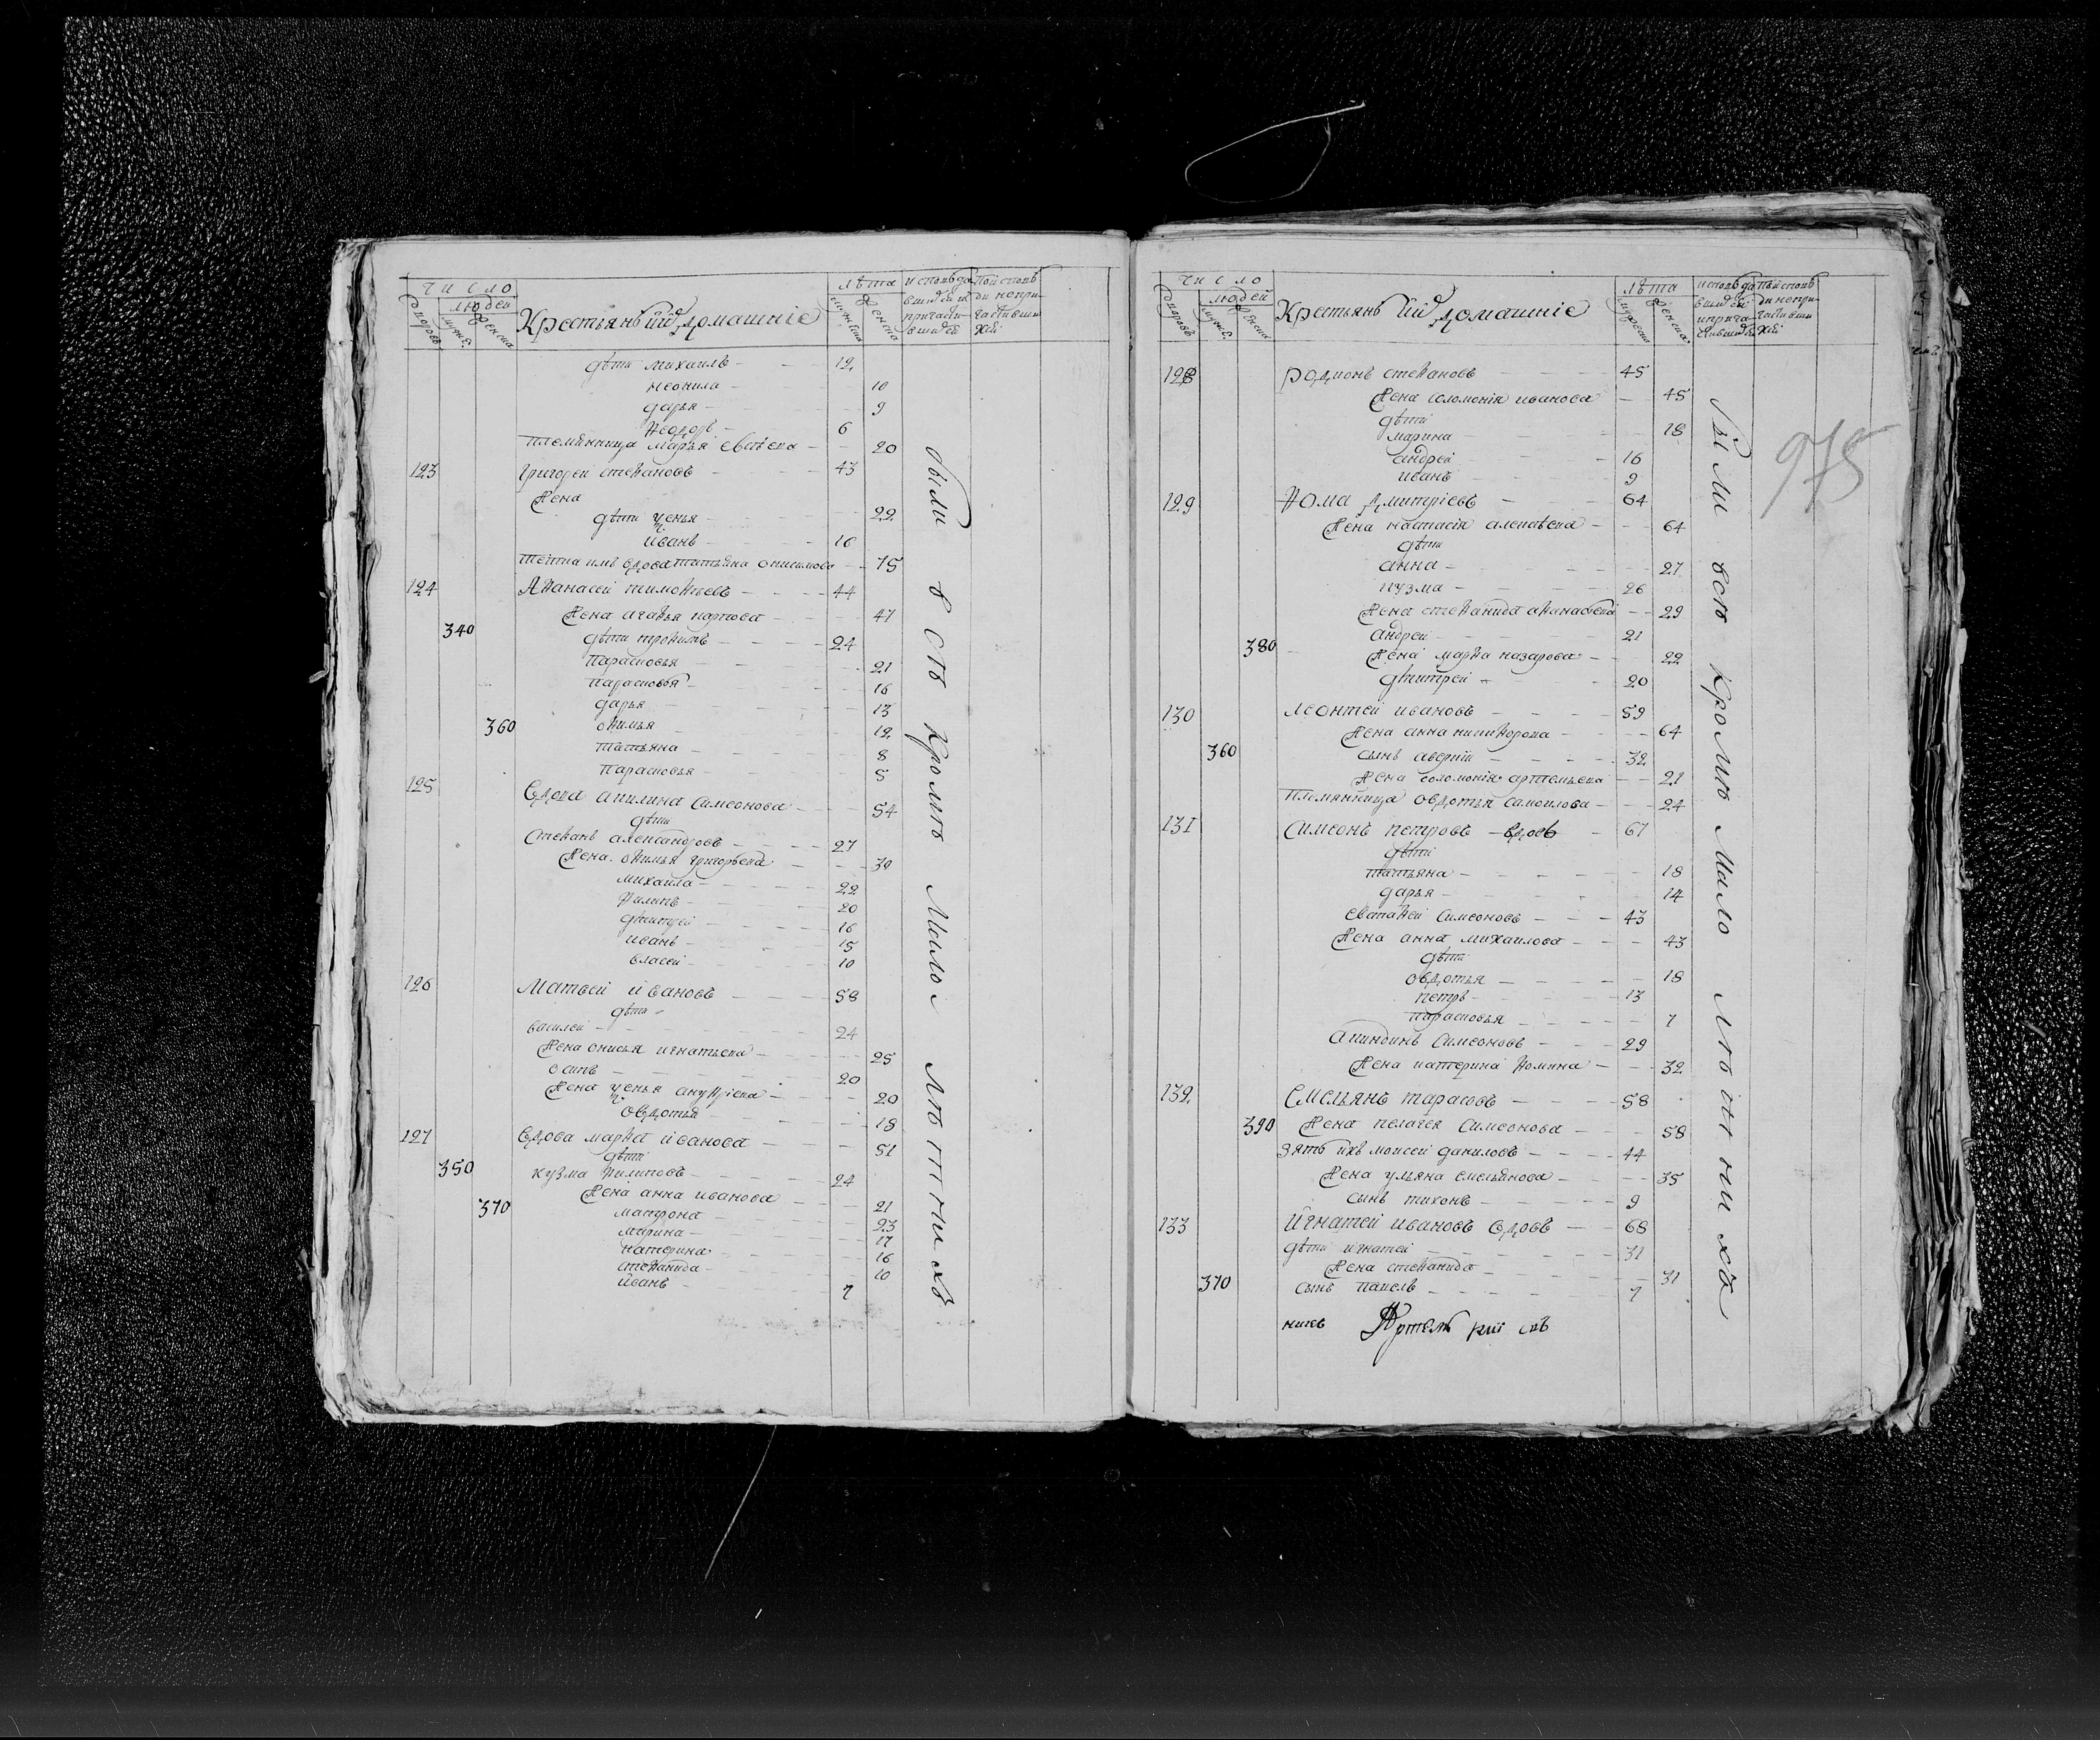 Число
людей
дворовъ
мужеск
женска
Крестьянъ ихъ домашніе
лѣта
мужеска
женска
исповѣда
вшихся и
причасти
вшихся
по исповѣ
ди непри-
частивши
хся
дѣти михаилъ 12
неонила 10
дарья 9
Ѳеодоръ 6
племянница марья 20
123 григорей стеѳановъ 43
жена
дѣти 22
иванъ 16
тетка имъ вдова татьяна онисимова 75
124 Аѳанасей тимоѳеевъ 44
жена агаѳья карпова 47
340 дѣти троѳимъ 24
парасковья 21
парасковья 16
дарья 13
360 оѳимья 12
татьяна 8
парасковья 5
125 вдова акилина симеонова 54
дѣти
стеѳанъ александровъ 27
жена оѳимья григорьева 30
михаила 22
Ѳилипъ 20
дмитрей 16
иванъ 15
власей 10
126 Матвей ивановъ 58
дѣти
василей 24
жена онисья игнатьева 25
осипъ 20
жена 20
овдотья 18
127 вдова марѳа иванова 51
дѣти
350 кузма Ѳилиповъ 24
жена анна иванова 21
370 матрона 23
марина 17
катерина 16
стеѳанида 10
иванъ 7
были всѣ кромѣ малолѣтнихъ
Число
людей
дворовъ
мужеск
женска
Крестьянъ ихъ домашніе
лѣта
мужеска
женска
исповѣда
вшихся
и прича-
стившихся
по исповѣ
ди непри-
частивши
хся
975
128 родионъ стеѳановъ 45
жена соломонія иванова 45
дѣти
марина 18
андрей 16
иванъ 9
129 Ѳома дмитріевъ 64
жена настасія алексѣева 64
дѣти
анна 27
кузма 26
жена стеѳанида аѳанасьева 29
андрей 21
380 жена марѳа назарова 22
дмитрей 20
130 леонтей ивановъ 59
жена анна никиѳорова 64
360 сынъ аверкій 32
жена соломонія артемьева 21
племянница овдотья самоилова 24
131 симеонъ петровъ вдовъ 67
дѣти
татьяна 18
дарья 14
евстаѳей симеоновъ 43
жена анна михаилова 43
дѣти
овдотья 18
петръ 13
парасковья 7
акиндинъ симеоновъ 29
жена катерина Ѳомина 32
132 емельянъ тарасовъ 58
390 жена пелагея симеонова 58
зять ихъ моисей даниловъ 44
жена ульяна емельянова 35
сынъ тихонъ 9
133 игнатей ивановъ вдовъ 68
дѣти игнатей 31
жена стеѳанида 31
370 сынъ павелъ 7
были всѣ кромѣ малолѣтнихъ